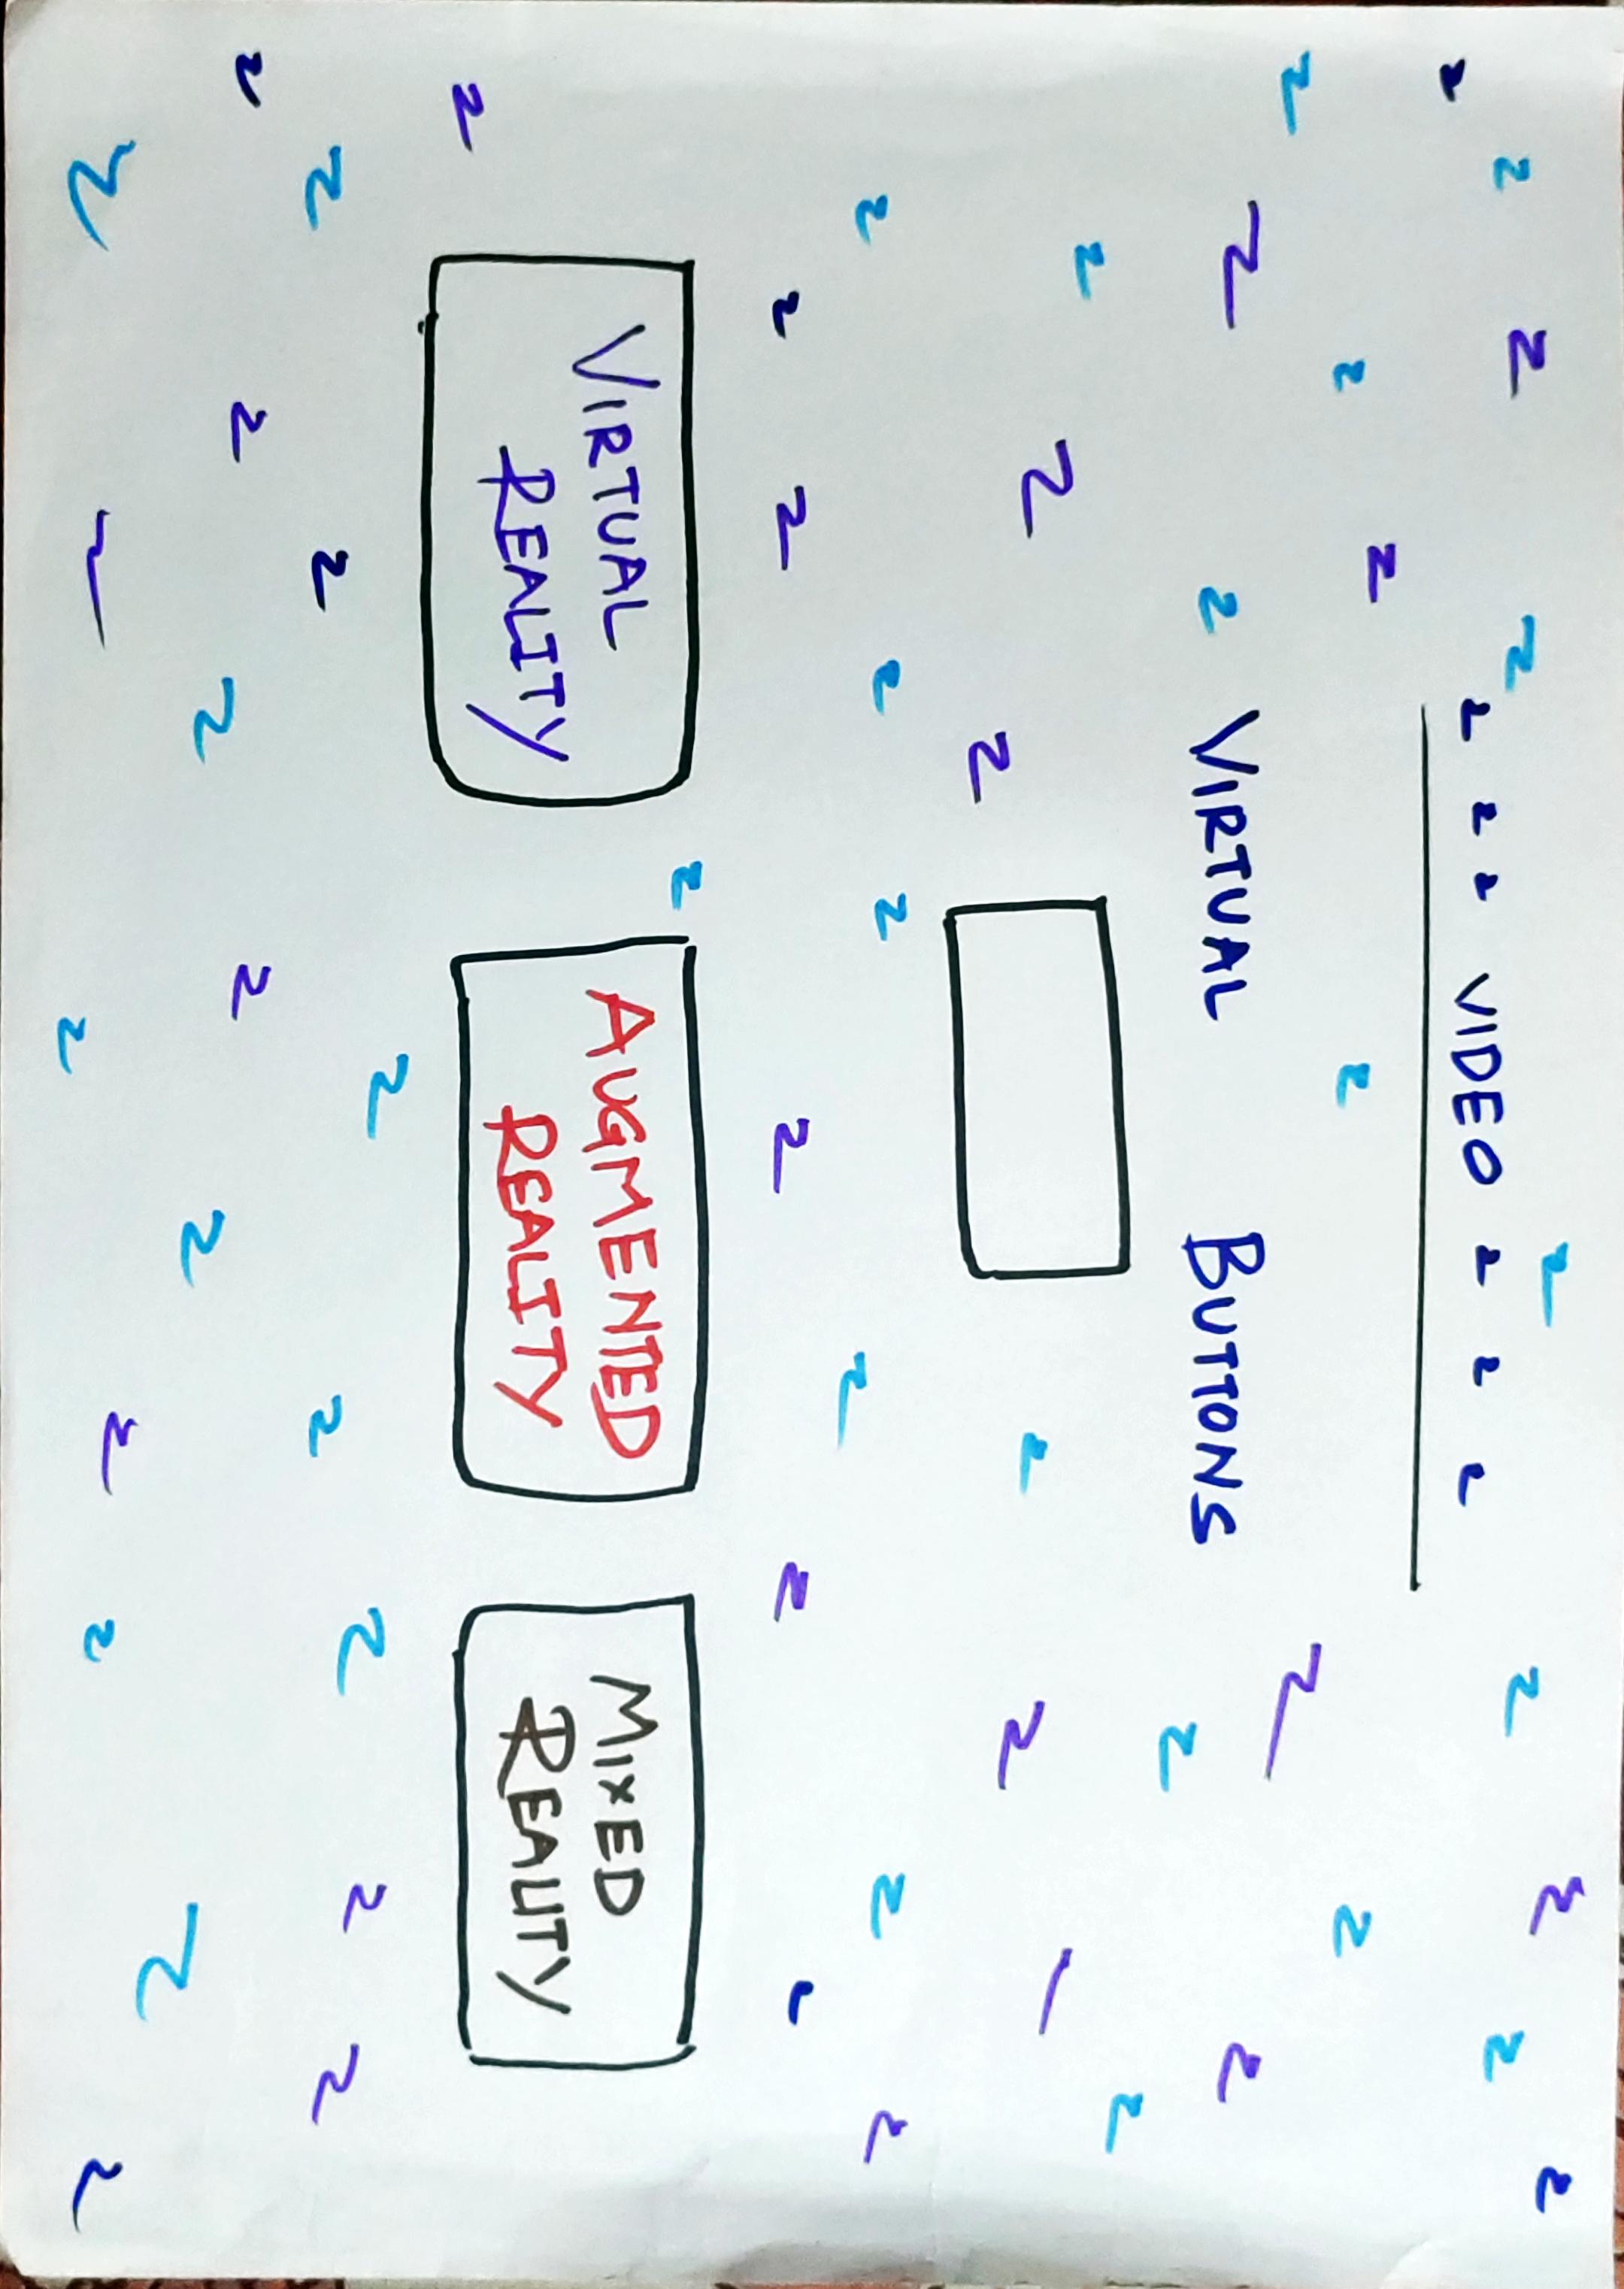 VIDEO
VIRTUAL BUTTONS
VIRTUAL
REALITY
AUGMENTED
REALITY
MIXED
REALITY